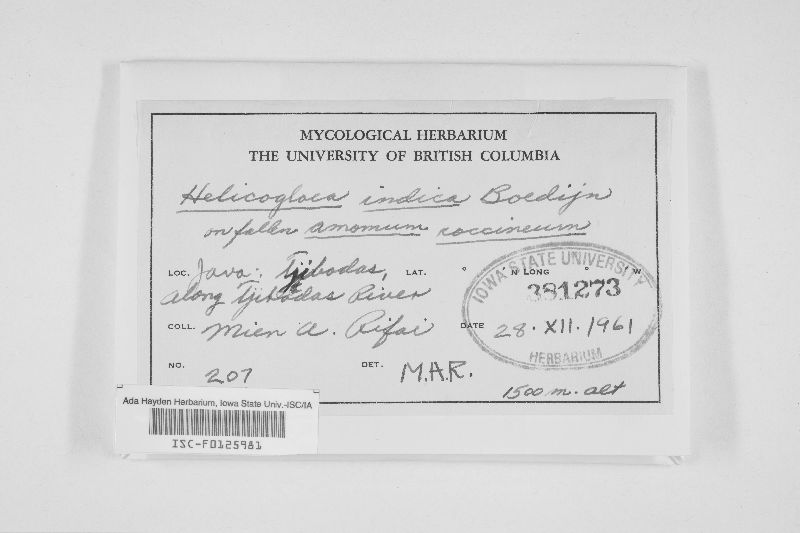 MYCOLOGICAL HERBARIUM
THE UNIVERSITY OF BRITISH COLUMBIA
Helicogloea indica Boedijn
on fallen Amomum coccineum
LOC. Java: Tjibodas, LAT. ° ' N LONG ° ' W
along Tjibodas River
IOWA STATE UNIVERSITY
381273
HERBARIUM
COLL. Mien A. Rifai DATE 28. XII. 1961
NO. 207 DET. M.A.R.
1500 m. alt
Ada Hayden Herbarium, Iowa State Univ.-ISC/IA
ISC-F0125981